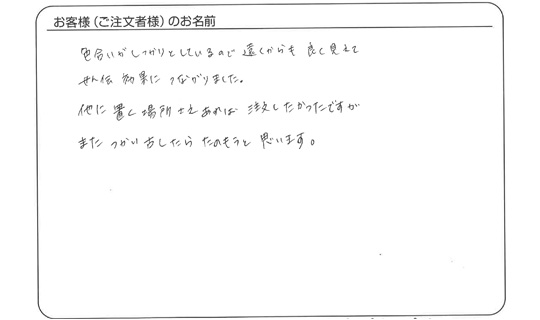 お客様（ご注文者様）のお名前
色合いがしっかりとしているので 遠くからも 良く見えて
せん伝 効果に つながりました。
他に 置く 場所 さえ あれば 注文したかったですが
また つかい 古したら たのもうと 思います。